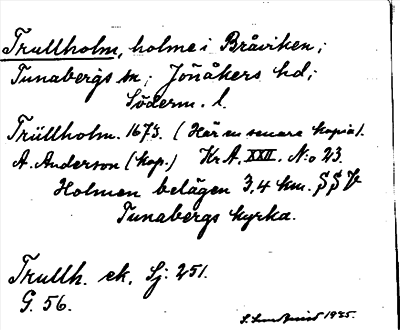 Trullholm, holme i Bråviken;
Tunabergs sn; Jönåkers hd;
Söderm. l.
Trüllholm. 1673. (Här en senare kopia).
A. Anderson (kop.) Kr A. XXII. N:o 23.
Holmen belägen 3,4 km. SSV
Tunabergs kyrka.
Trullh. ek. Sj: 251.
G. 56.
S. 1925.